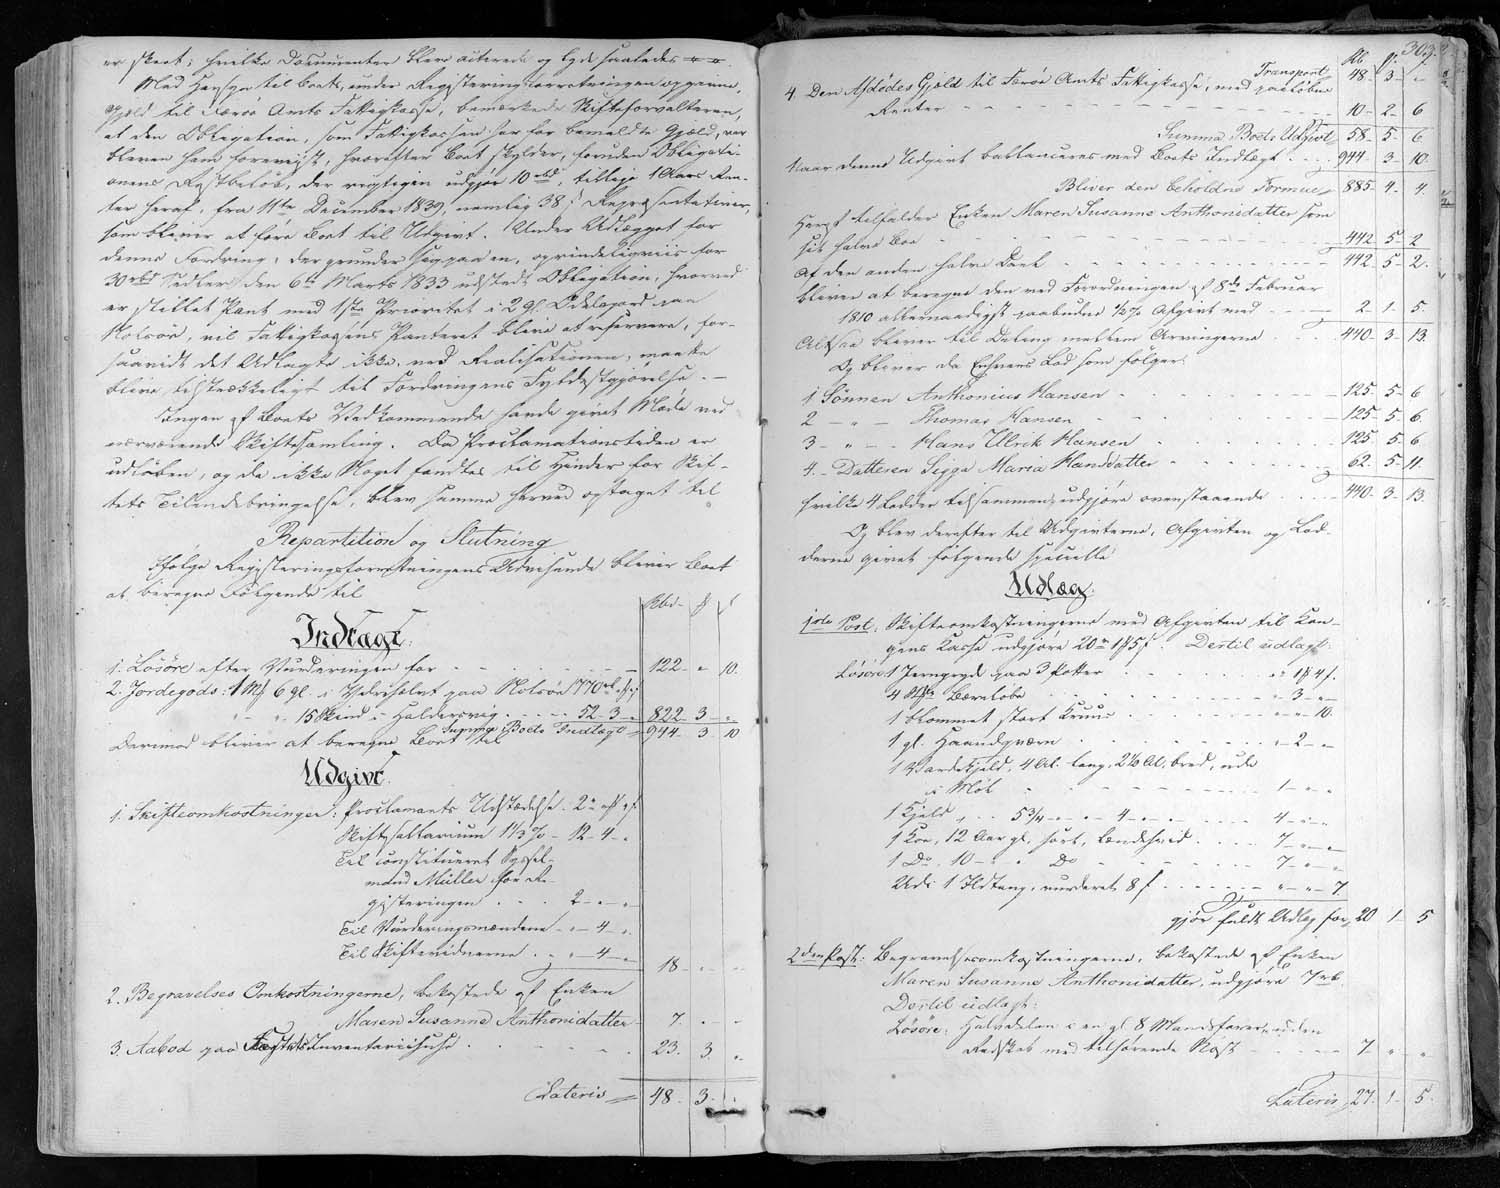 er skeet; hvilke Documenter blev acterede og lyde saaledes
Med Hensyn til Boets, under Registeringsforretningen opgivne,
Gjeld til Færøe Amts Fattigkasse, bemærkede Skifteforvalteren,
at den Obligation, som Fattigkassen har for bemeldte Gjeld, var
bleven ham foreviist, hvorefter Boet skylder, foruden Obligati-
onens Restbeløb, der rigtigen udgjør 10 rbd, tillige 1 Aars Ren-
ter heraf, fra 11te December 1839, nemlig 38 s Repræsentativer,
som bliver at føre Boet til Udgivt. Under Udlægget for
denne Fordring, der grunder sig paa en, oprindeligviis for
30 rbd Sedler, den 6te Marts 1833 udstedt Obligation, hvorved
er stillet Pant med 1ste Prioritet i 2 gl. Odelsjord paa
Nolsøe, vil Fattigkassens Panteret blive at reservere, for-
saavidt det Udlagte ikke, ved Realisationen, maatte
blive tilstrækkeligt til Fordringens Fyldestgjørelse. —
Ingen af Boets Vedkommende havde givet Møde ved
nærværende Skiftesamling. Da Proclamationstiden er
udløben, og da ikke Noget fandtes til Hinder for Skif-
tets Tilendebringelse, blev samme herved optaget til
Repartition og Slutning
Ifølge Registeringsforretningens Udvisende bliver Boet
at beregne Følgende til
Rbd. ß
Indtægt.
1. Løsøre efter Vurderingen for 122 „ 10.
2. Jordegods: 1 Mk 6 gl. i paa Nolsøe 770 rbd
„ „ 15 Skind i Haldersvig 52 - 3 - „ 822 3 „
Summa Boets Indtægt 944 3 10
Derimod bliver at beregne Boet til
Udgivt.
1. Skifteomkostninger: Proclamaets Udstædelse 2
Skiftesallarium 1 1/3 % - 12 - 4 „
Til constitueret Syssel-
mand Müller for Re-
gisteringen 2 „ „
Til Vurderingsmændene „ 4 „
Til Skiftevidnerne „ 4 „ 18 „ „
2. Begravelses Omkostningerne, bekostede af Enken
Maren Susanne Anthonidatter 7. „ „
3. Aabod paa Fæstets Inventariihuse 23. 3. „
Lateris 48. 3. „
303.
Rb ß
Transport 48 - 3 - „
4. Den Afdødes Gjeld til Færøe Amts Fattigkasse, med paaløbne
Renter 10 - 2 - 6
Summa Boets Udgivt 58 - 5 - 6
Naar denne Udgivt ballanceres med Boets Indtægt 944 - 3 - 10.
Bliver den beholdne Formue 885 - 4 - 4.
Heraf tilfalder Enken Maren Susanne Anthonidatter som
sit halve Boe 442 - 5 - 2
Af den anden halve Deel 442 - 5 - 2.
bliver at beregne den ved Forordningen af 8de Februar
1810 allernaadigst paabudne 1/2 % Afgivt med 2 - 1 - 5.
Altsaa bliver til Deling mellem Arvingerne 440 - 3 - 13.
Og bliver da Enhvers Lod som følger:
1 Sønnen Anthonius Hansen 125 - 5 - 6
2 — „ — Thomas Hansen 125 - 5 - 6.
3 — „ — Hans Ulrik Hansen 125 - 5 - 6.
4. — Datteren Sigga Maria Hansdatter 62. 5 - 11.
hvilke 4 Lodder tilsammen udgjøre ovenstaaende 440 - 3 - 13.
Og blev derefter til Udgivterne, Afgivten og Lod-
derne givet følgende specielle
Udlæg.
1ste Post: Skifteomkostningerne med Afgivten til Kon-
gens Kasse udgjøre 20 rbd 1 ß 5 s. Dertil udlagt:
Løsøre: 1 Jerngryde paa 3 Potter „ 1 ß 4 s.
4 Stkr Bærelöbe „ 3 „
1 blommet stort Kruus „ „ 10.
1 gl. Haandqværn „ 2 „
1 Vardekjeld, 4 Al. lang, 2 1/2 Al. bred, ude
i Møl 1 „ „
1 Kjeld „ 5 3/4 „ „ 4 „ 4 „ „
1 Koe, 12 Aar gl. sort, 7 „ „
1 Do, 10 „ „ Do 7 „ „
Udi 1 Ildtang, vurderet 8 s „ „ 7
gjør fuldt Udlæg for 20 1 5
2den Post: Begravelsesomkostningerne, bekostede af Enken
Maren Susanne Anthonidatter, udgjøre 7 rb
Dertil udlagt:
Løsøre: Halvdelen i en gl 8 Mandsfarer, uden
Redskab med tilhørende Nøst 7 „ „
Lateris 27. 1. 5.